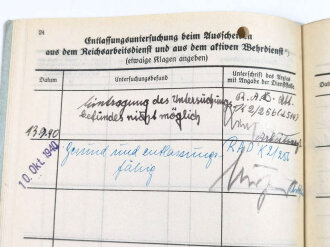 24
Entlassungsuntersuchung beim Ausscheiden
aus dem Reichsarbeitsdienst und aus dem aktiven Wehrdienst
(etwaige Klagen angeben)
Datum
Untersuchungsbefund
Unterschrift des Arztes
mit Angabe der Dienststelle
Eintragung des Untersuchungs
befundes nicht möglich
R.A.D. Abt.
13.9.40
10. Okt. 1940
Gesund und entlassungs-
fähig
RAD K2/256